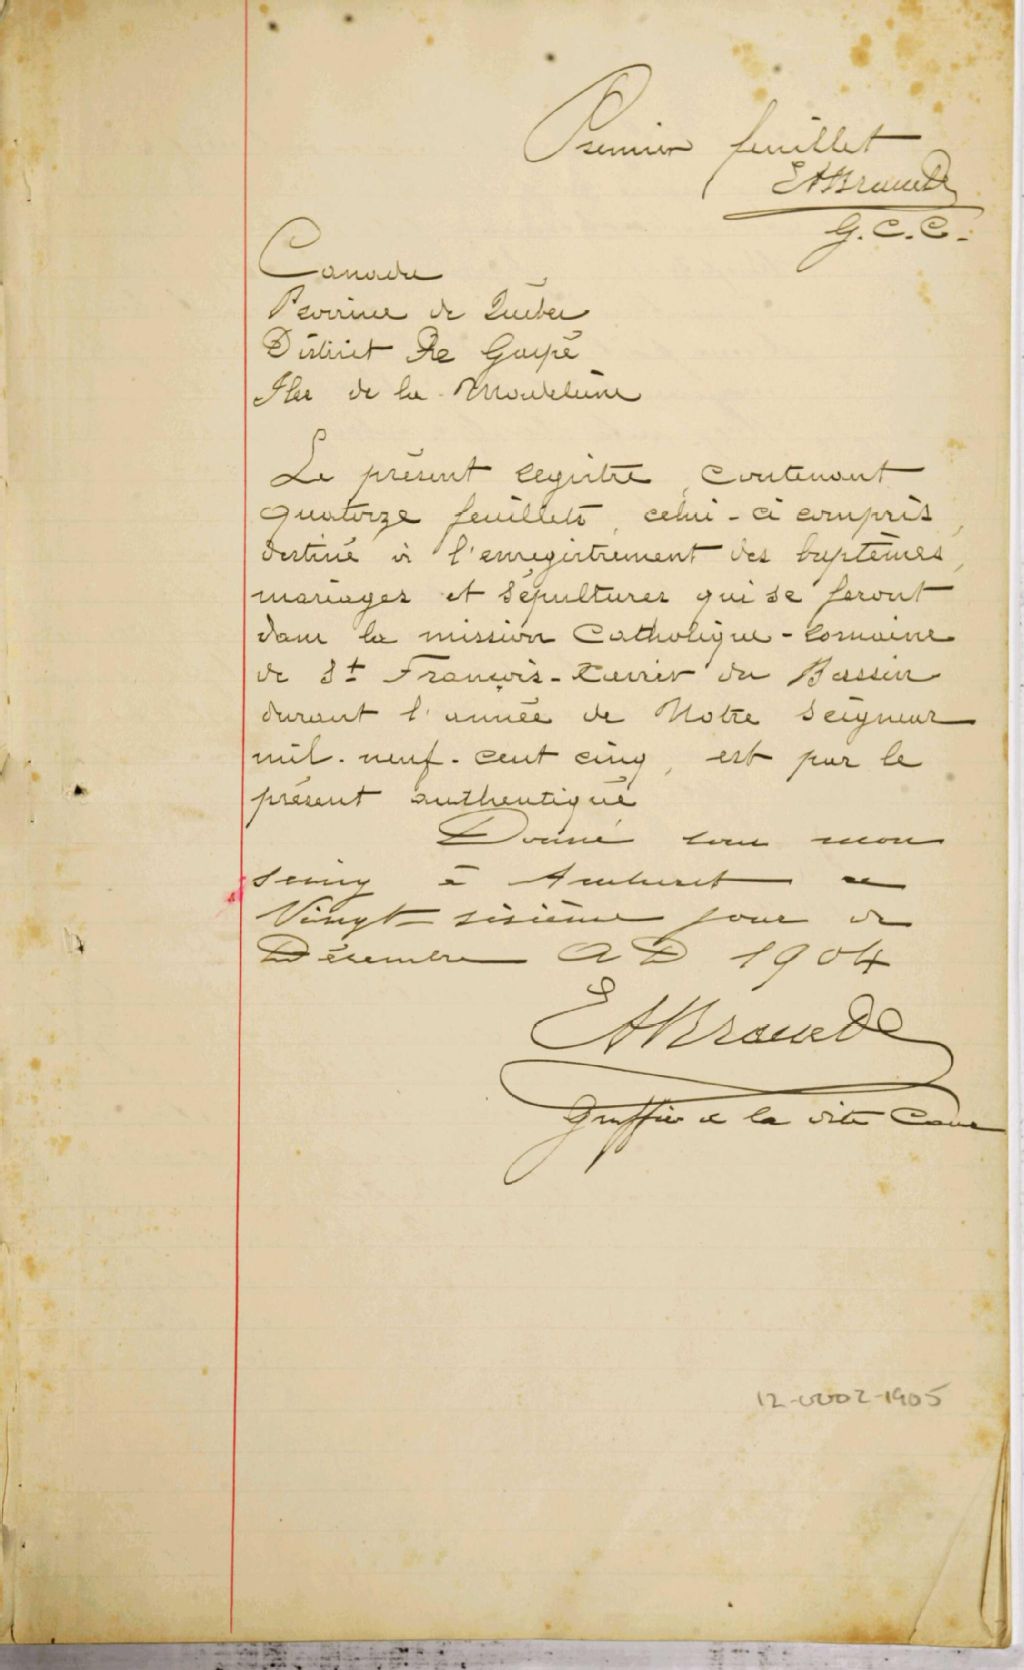 Premier feuillet
EABrasset
G. C. C.
Canada
Province de Québec
District De Gaspé
Iles de la Madeleine
Le présent registre, contenant
quatorze feuillets, celui-ci compris,
destiné à l'enregistrement des baptêmes,
mariages et sépultures qui se feront
dans la mission Catholique-romaine
de St François-Xavier du Bassin
durant l'année de Notre Seigneur
mil-neuf-cent cinq, est par le
présent authentiqué
Donné sous mon
seing à Amherst ce
Vingt-sixième jour de
Décembre A D 1904
Greffier de la dite Cour
12-0002-1905